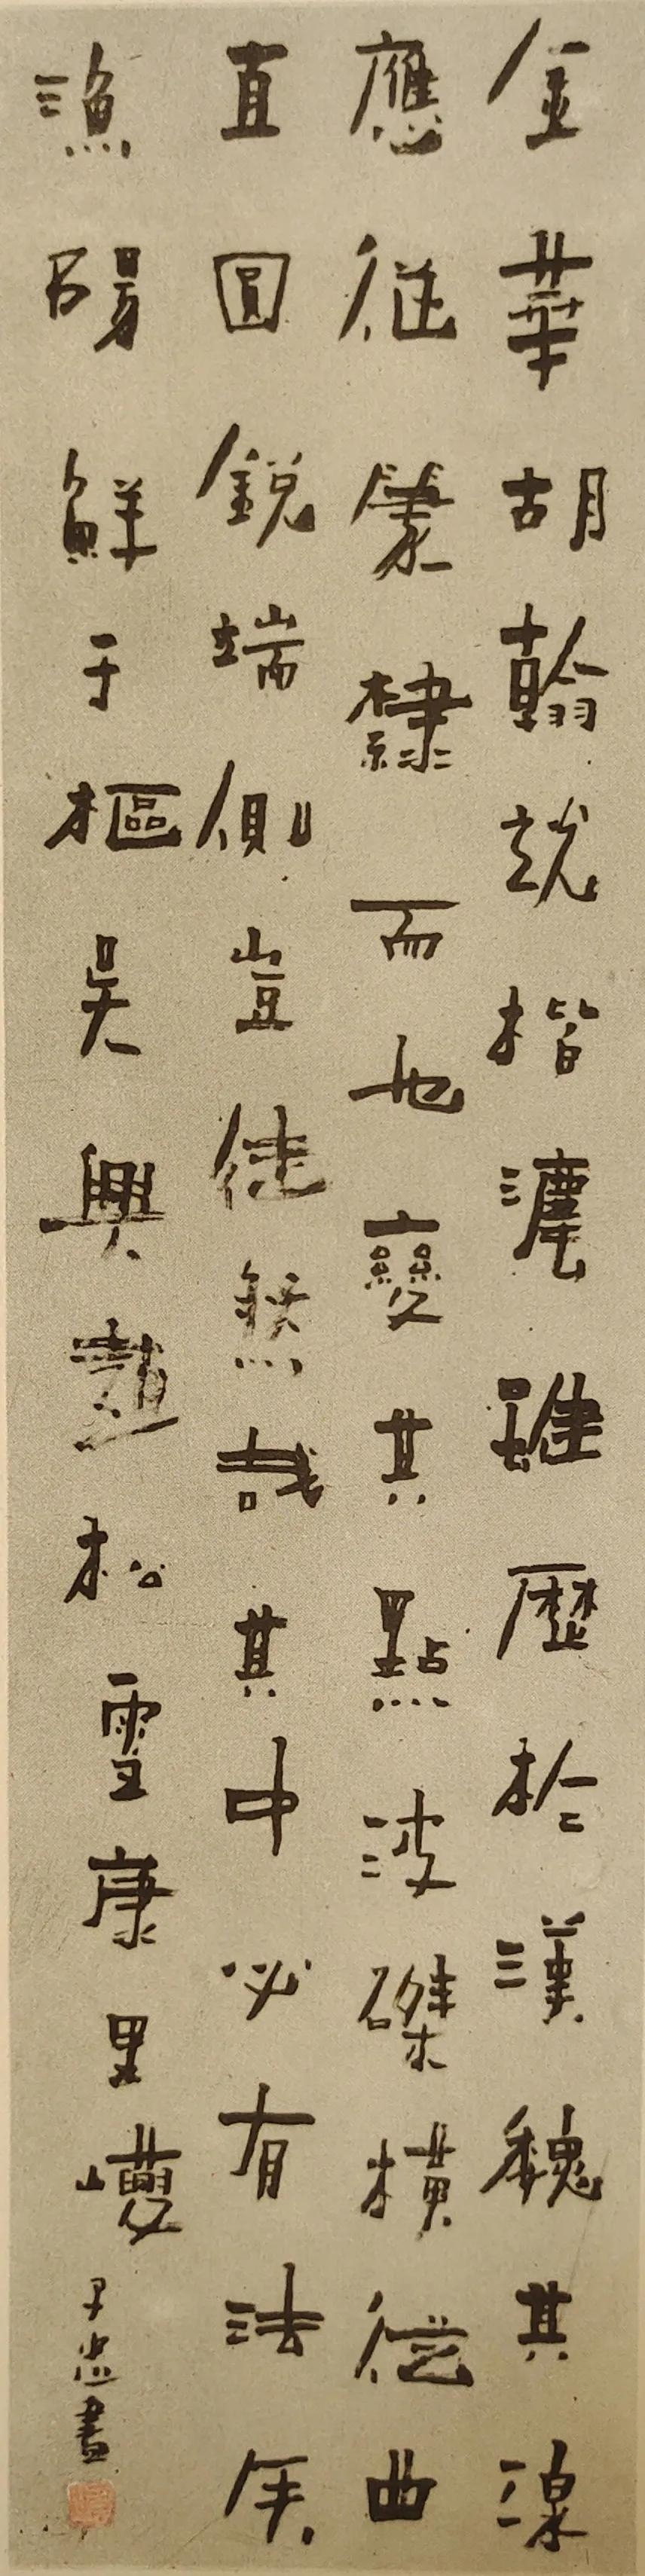 金華胡翰說楷法雖歷於漢魏其源
應從篆隸而也變其點波磔橫從曲
直圓銳端側豈徒然哉其中必有法矣
漁陽鮮于樞吳興趙松雪康里巎
子忠書